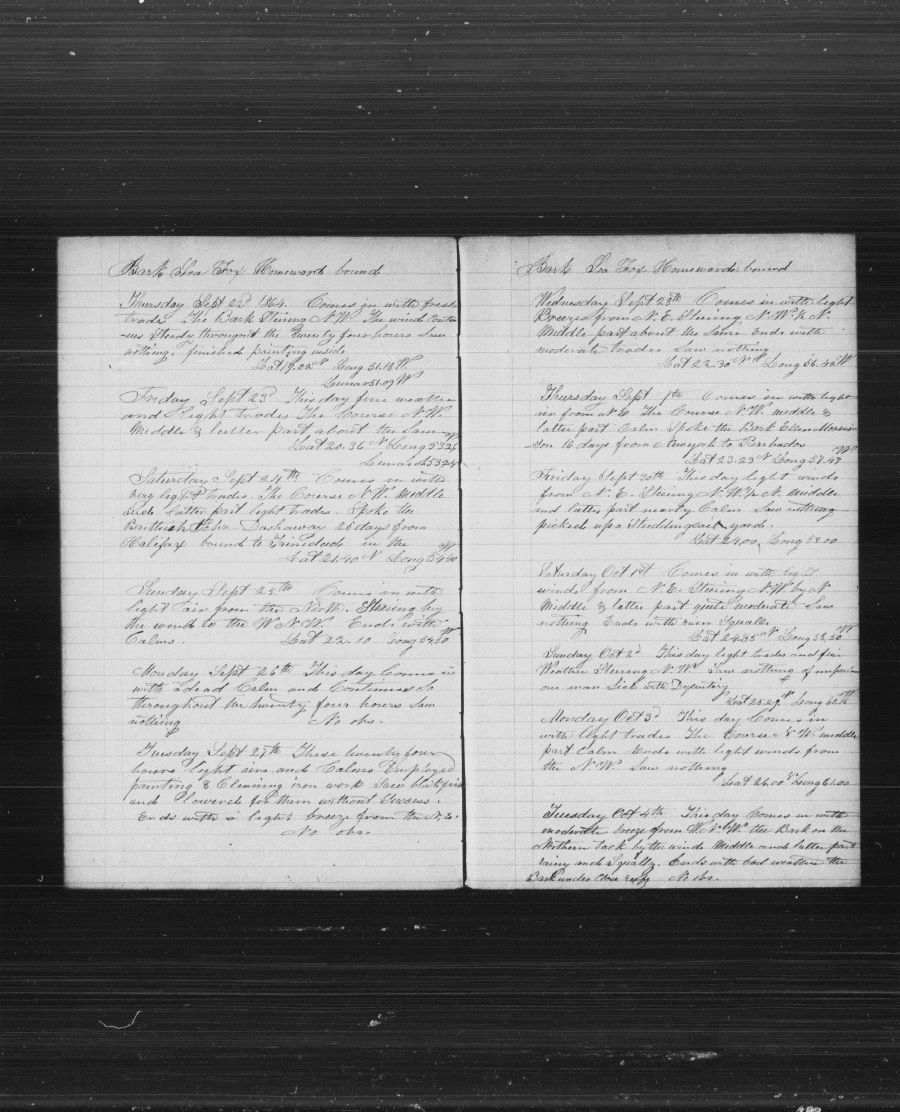 Bark Sea Fox Homeward bound
Thursday Sept 22d 1864. Comes in with fresh
trades The Bark Steering N.W. The wind contin
-ues Steady throughout the twenty four hours Saw
nothing, finished painting inside
Lat 19.02 N Long 51.18 W.
Lunar 51.09 W
Friday Sept 23d This day fine weather
and Light trades The Course N.W.
Middle & latter part about the Same
Lat 20.36 N Long 53.26 W
Lunar 53.24
Saturday Sept 24th Comes in with
very light trades. The Course N.W. Middle
and latter part light trades. Spoke the
Brittish Schr 25 days from
Halifax bound to Trinidad in the
Lat 21.40 N Long 54.40 W
Sunday Sept 25th Comes in with
light air from the North. Steering by
the wind to the W.N.W. Ends with
Calms. Lat 22.10 Long 54.50 W
Monday Sept 26th This day Comes in
with a dead Calm and Continues So
throughout the twenty four hours Saw
nothing No obs.
Tuesday Sept 27th These twenty four
hours light airs and Calms Employed
painting & Cleaning iron work Saw blackfish
and Lowered for them without Success.
Ends with a light breeze from the N.E.
No obs.
Bark Sea Fox Homeward bound
Wednesday Sept 28th Comes in with light
Breezes from N.E. Steering N.W. ½ N.
Middle part about the Same. Ends with
moderate trades Saw nothing
Lat 22.30 N Long 56.42 W
Thursday Sept Comes in with light
air from N.E. The Course N.W. middle &
latter part Calm Spoke the Bark Ellen Morri
-son 16 days from Newyork to Barbados
Lat 23.23 N Long 57.47 W
Friday Sept 30th This day light winds
from N.E. Steering N.W. ½ N. Middle
and latter part nearly Calm Saw nothing
picked up a Studdingsail yard.
Lat 24.00 Long 58.00
Saturday Oct 1st Comes in with light
winds from N.E. Steering N.W. by N.
Middle & latter part quite moderate Saw
nothing Ends with rain Squalls
Lat 24.45 N Long 58.50 W
Sunday Oct 2d This day light trades and fine
Weather Steering N.W. Saw nothing of importan
one man Sick with Dysentery
Lat 25.29 N Long 60.15 W
Monday Oct 3d This day Comes in
with light trades The Course N.W. middle
part Calm Ends with light winds from
the N.W. Saw nothing
Lat 26.00 N Long 61.00
Tuesday Oct 4th This day Comes in with
moderate breeze from W.N.W. the Bark on the
Northern tack by the wind Middle and latter part
rainy and Squally. Ends with bad weather the
Bark under Close reefs No obs.